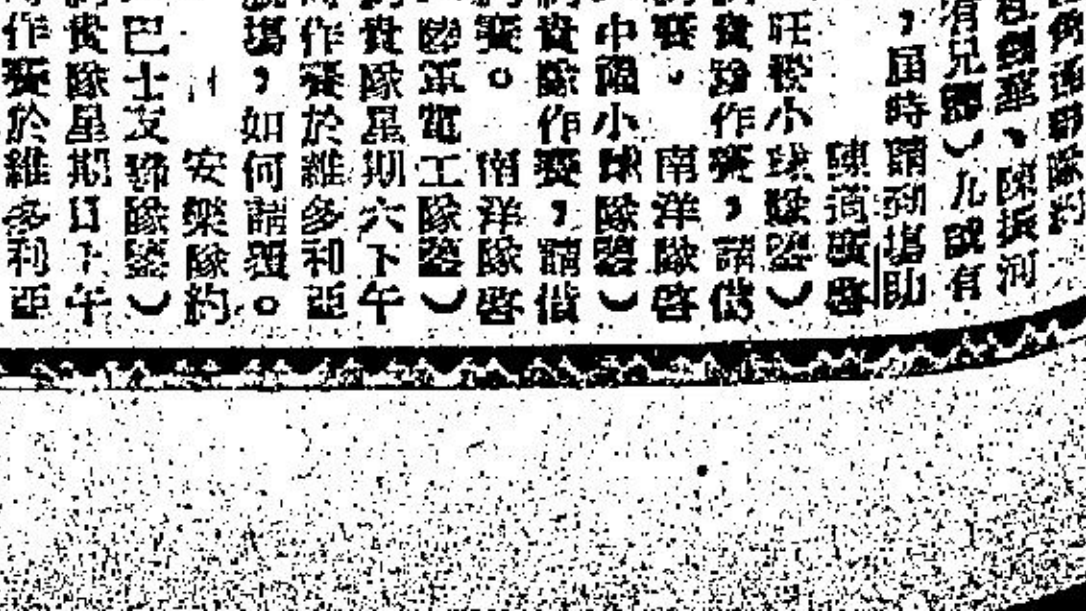 隊約
華、陳振河
有兄）九號有
，屆時請到場助
陳道廣啓
旺小球隊鑒）
貴隊作賽，請借
賽。　南洋隊啓
中小球隊鑒）
貴隊作賽，請借
賽。　南洋隊啓
陸軍電工隊鑒）
貴隊星期六下午
作賽於維多利亞
場，如何請覆。
安樂隊約
巴士友聯隊鑒）
貴隊星期日上午
作賽於維多利亞